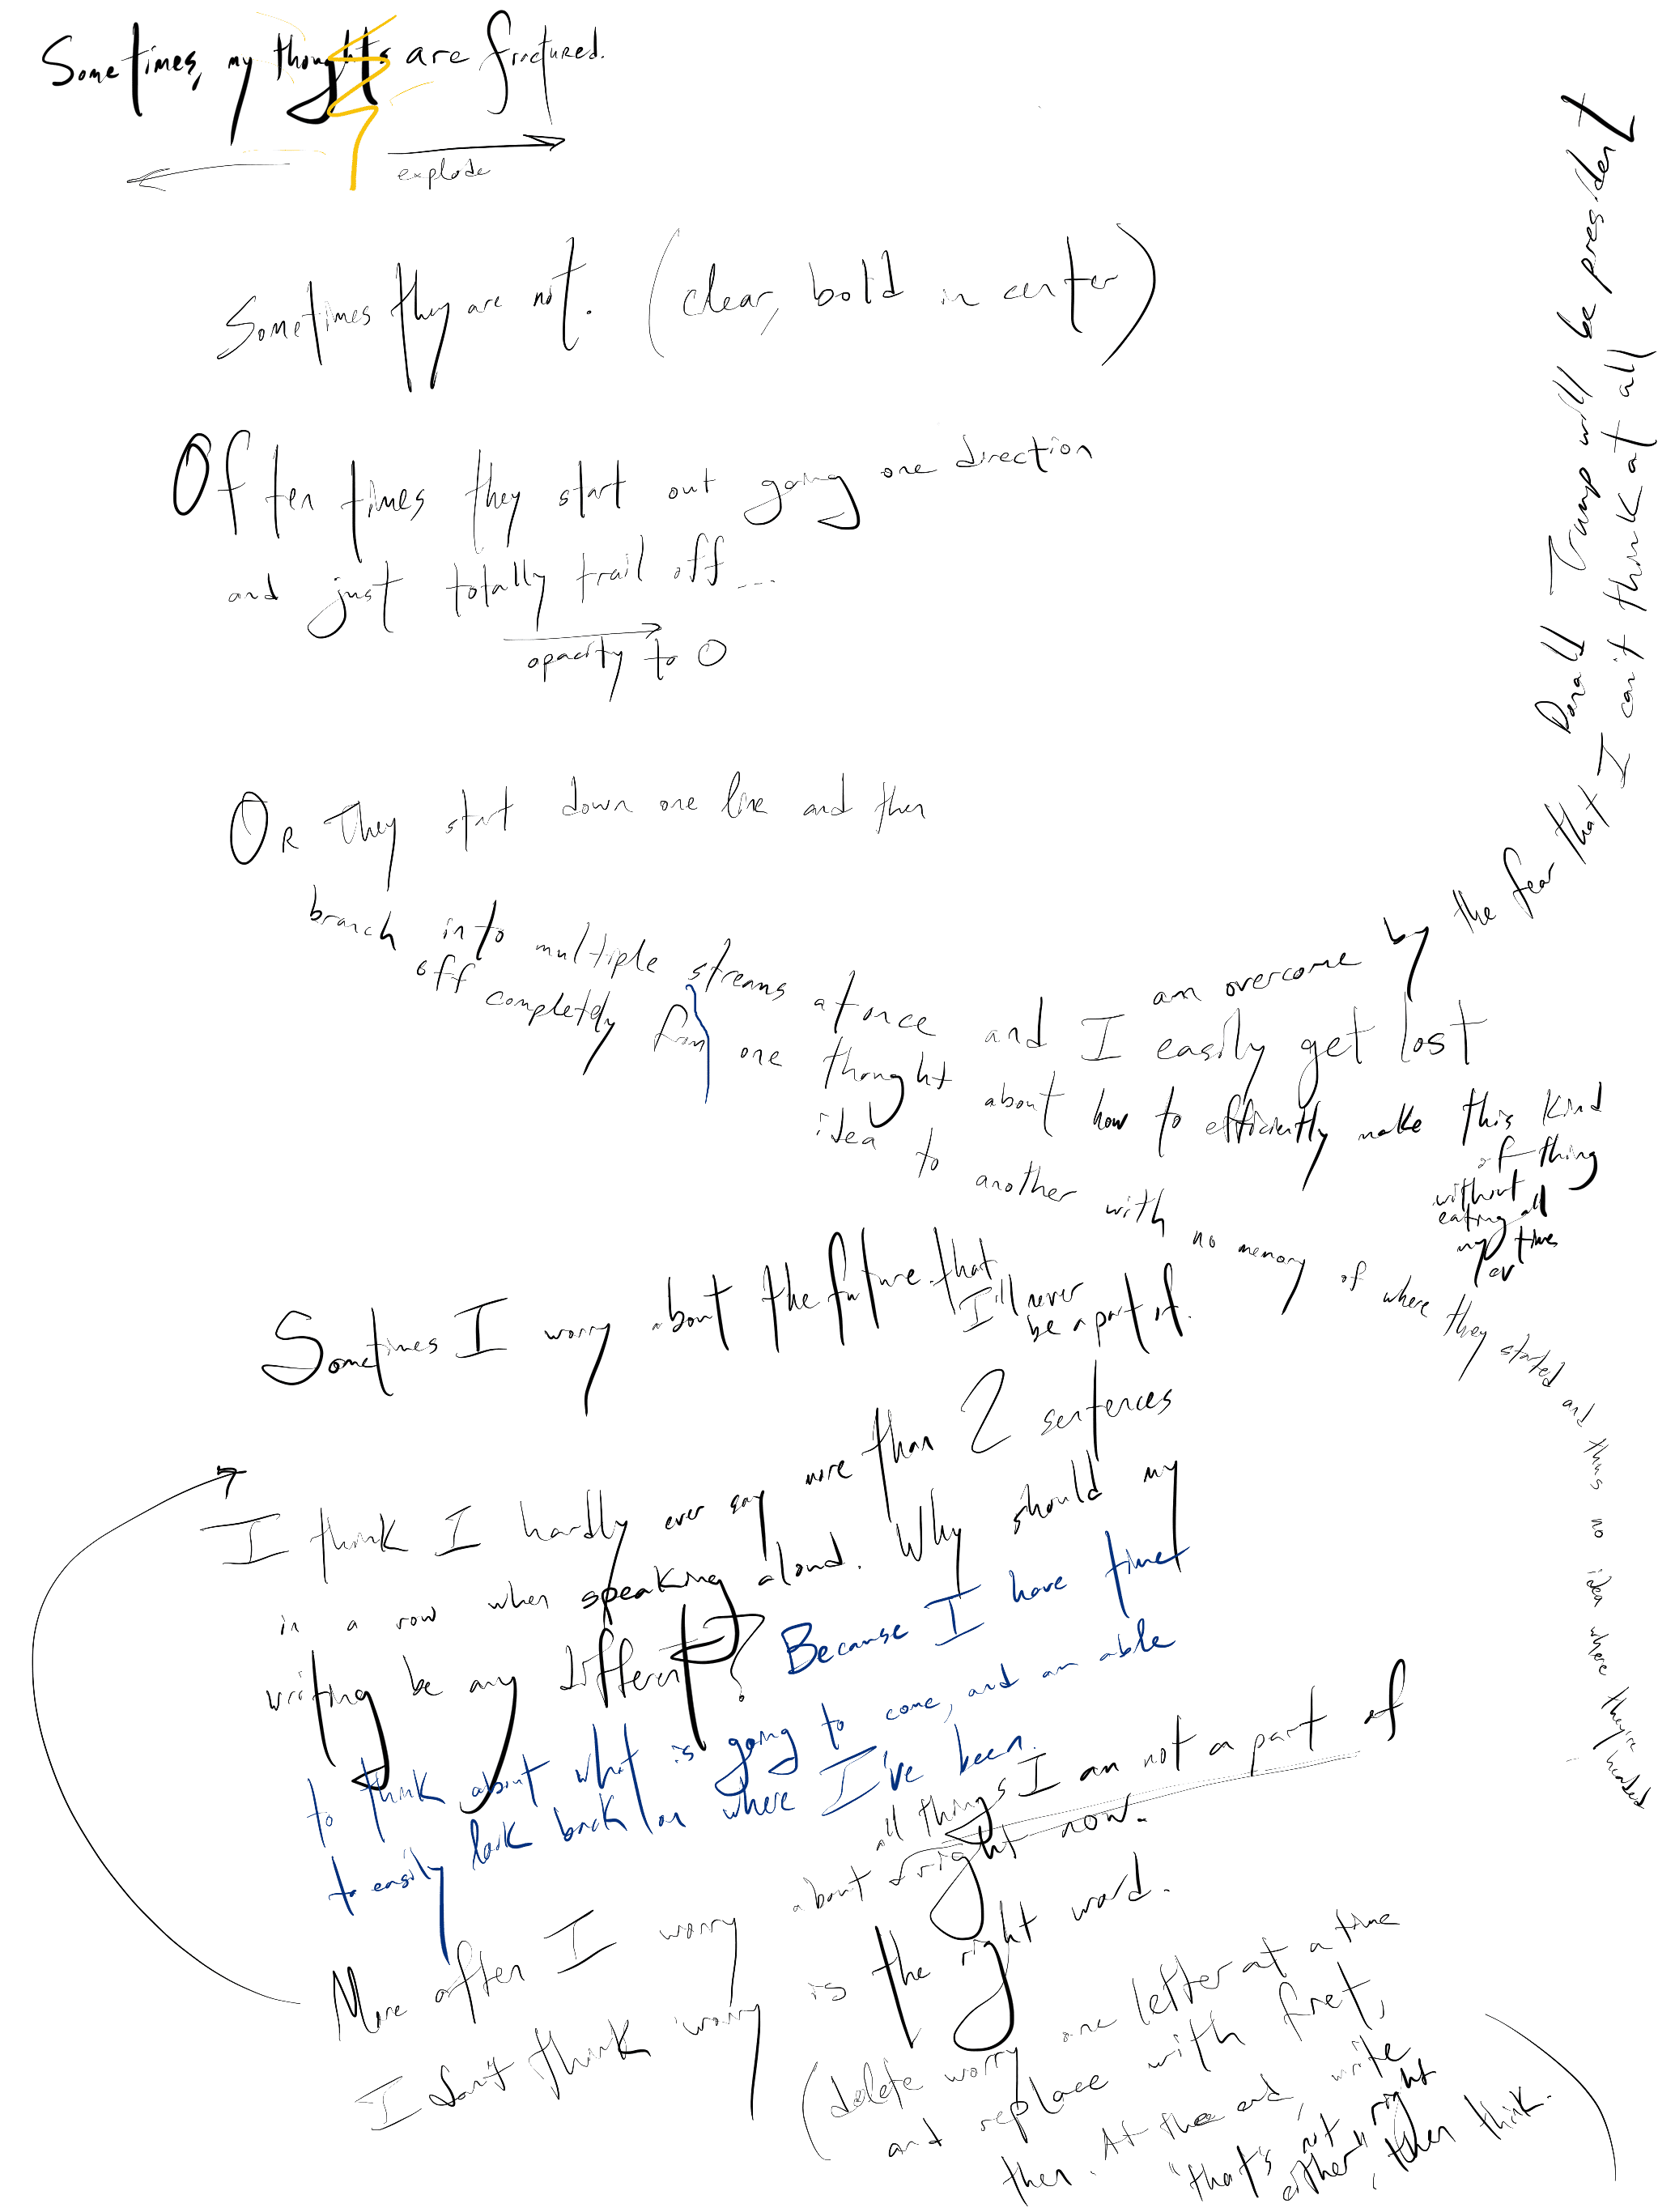 Sometimes, my thoughts are fractured.
explode
Sometimes they are not. (clear, bold in center)
Often times they start out going one direction
and just totally trail off...
opacity to 0
Or they start down one line and then
branch into multiple streams at once and I easily get lost
am overcome by the fear that I can't think at all
Donald Trump will be president
off completely from one thought about how to efficiently make this kind
of thing
without
eating all
my time
idea to another with no memory of where they started and thus no idea where they're headed
Sometimes I worry about the future that
I'll never
be a part of.
I think I hardly ever say more than 2 sentences
in a row when speaking aloud. Why should my
writing be any different? Because I have time
to think about what is going to come, and am able
to easily look back on where I've been.
all things I am not a part of
More often I worry about right now.
I don't think worry is the right word.
(delete worry one letter at a time
and replace with fret,
then. At the end, write
"that's not right
either", then think.)